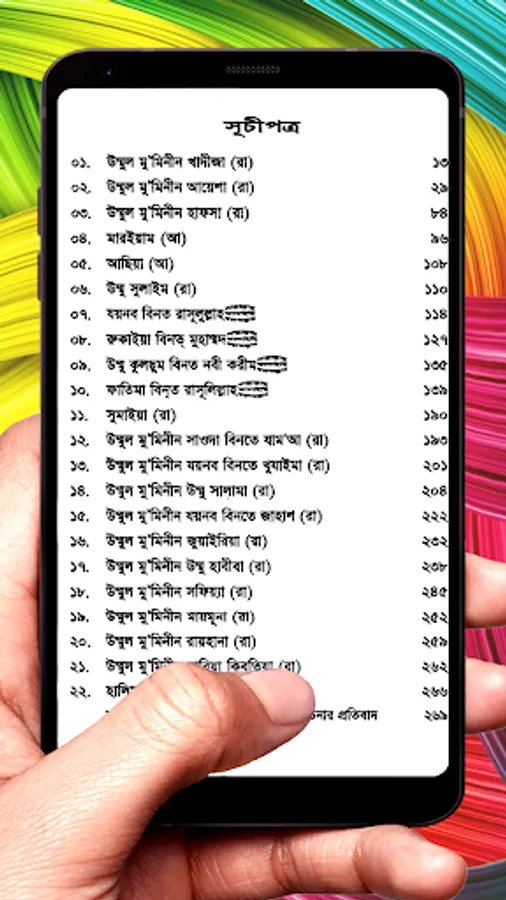 সূচীপত্র
০১. উম্মুল মু'মিনীন খাদীজা (রা) ১৩
০২. উম্মুল মু'মিনীন আয়েশা (রা) ২৯
০৩. উম্মুল মু'মিনীন হাফসা (রা) ৮৪
০৪. মারইয়াম (আ) ৯৬
০৫. আছিয়া (আ) ১০৮
০৬. উম্মু সুলাইম (রা) ১১০
০৭. যয়নব বিনত রাসূলুল্লাহ ১১৪
০৮. রুকাইয়া বিনত্ মুহাম্মদ ১২৭
০৯. উম্মু কুলছুম বিনত নবী করীম ১৩৫
১০. ফাতিমা বিন্ত রাসূলিল্লাহ ১৩৯
১১. সুমাইয়া (রা) ১৯০
১২. উম্মুল মু'মিনীন সাওদা বিনতে যাম'আ (রা) ১৯৩
১৩. উম্মুল মু'মিনীন যয়নব বিনতে খুযাইমা (রা) ২০১
১৪. উম্মুল মু'মিনীন উম্মু সালামা (রা) ২০৪
১৫. উম্মুল মু'মিনীন যয়নব বিনতে জাহাশ (রা) ২২২
১৬. উম্মুল মু'মিনীন জুয়াইরিয়া (রা) ২৩২
১৭. উম্মুল মু'মিনীন উম্মু হাবীবা (রা) ২৩৮
১৮. উম্মুল মু'মিনীন সফিয়্যা (রা) ২৪৫
১৯. উম্মুল মু'মিনীন মায়মূনা (রা) ২৫২
২০. উম্মুল মু'মিনীন রায়হানা (রা) ২৫৯
২১. উম্মুল মু'মিনীন কিবতিয়া (রা) ২৬২
২২. ২৬৬
প্রতিবাদ ২৬৯